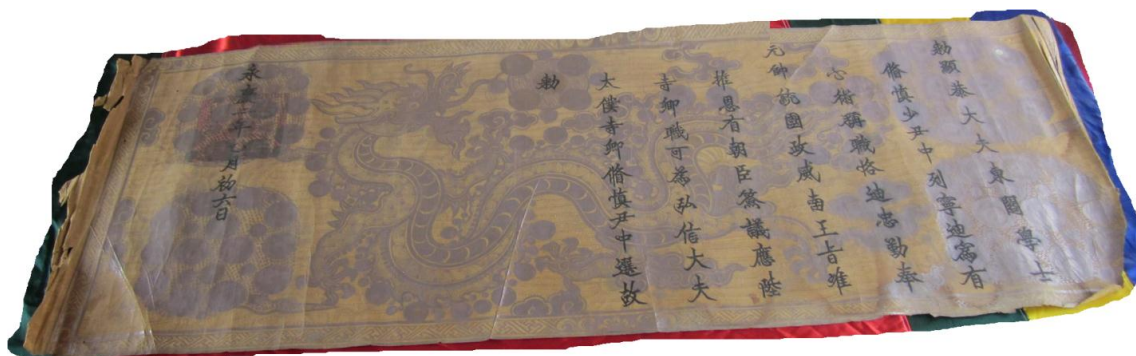 勅顯恭大夫東閣學士
脩慎少尹中列寧迪為有
心術稱職恪迪忠勤奉
元帥統國政威南王旨准
推恩有朝臣僉議應陞
寺卿職可為弘信大夫
太僕寺卿脩慎尹中選故
勅
永慶年月初六日